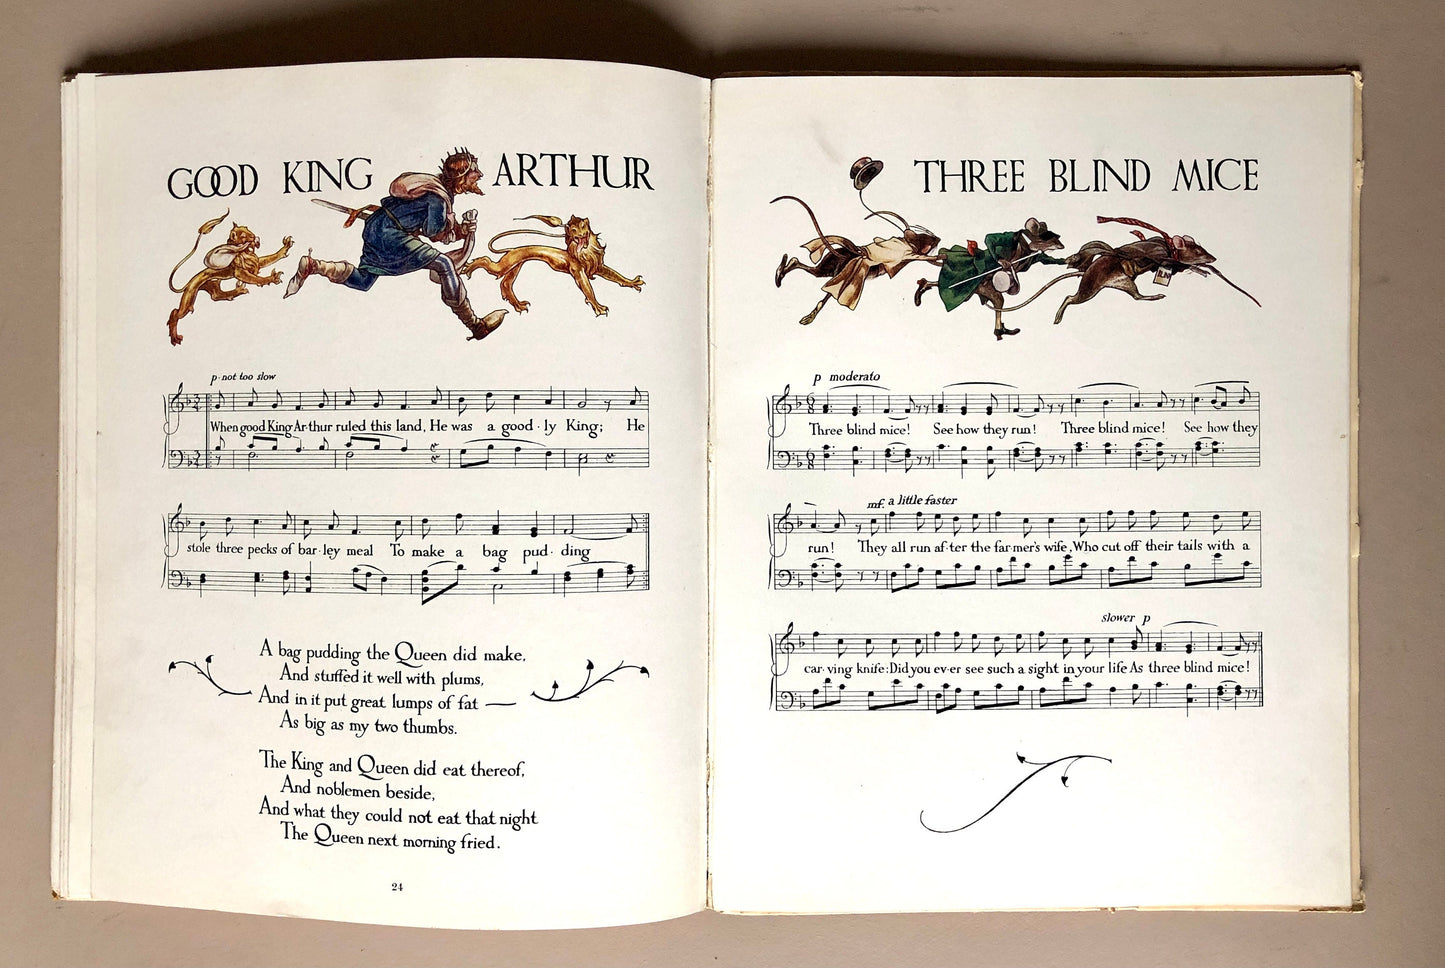 GOOD KING ARTHUR
p. not too slow
When good King Ar-thur ruled this land, He was a good-ly King; He
stole three pecks of bar-ley meal To make a bag pud-ding
A bag pudding the Queen did make,
And stuffed it well with plums,
And in it put great lumps of fat —
As big as my two thumbs.
The King and Queen did eat thereof,
And noblemen beside,
And what they could not eat that night
The Queen next morning fried.
24
THREE BLIND MICE
p moderato
Three blind mice! See how they run! Three blind mice! See how they
mf. a little faster
run! They all run af-ter the far-mer's wife, Who cut off their tails with a
slower p
car-ving knife: Did you ev-er see such a sight in your life As three blind mice!